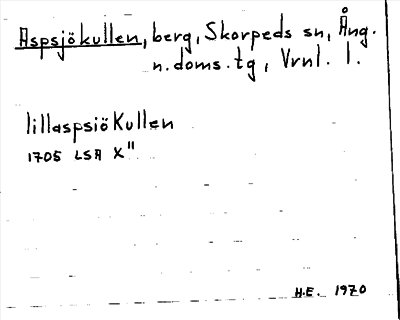 Aspsjökullen, berg, Skorpeds sn, Ång.
n. doms. tg, Vrnl. l.
lillaspsiö Kullen
1705 LSA X"
H.E. 1970